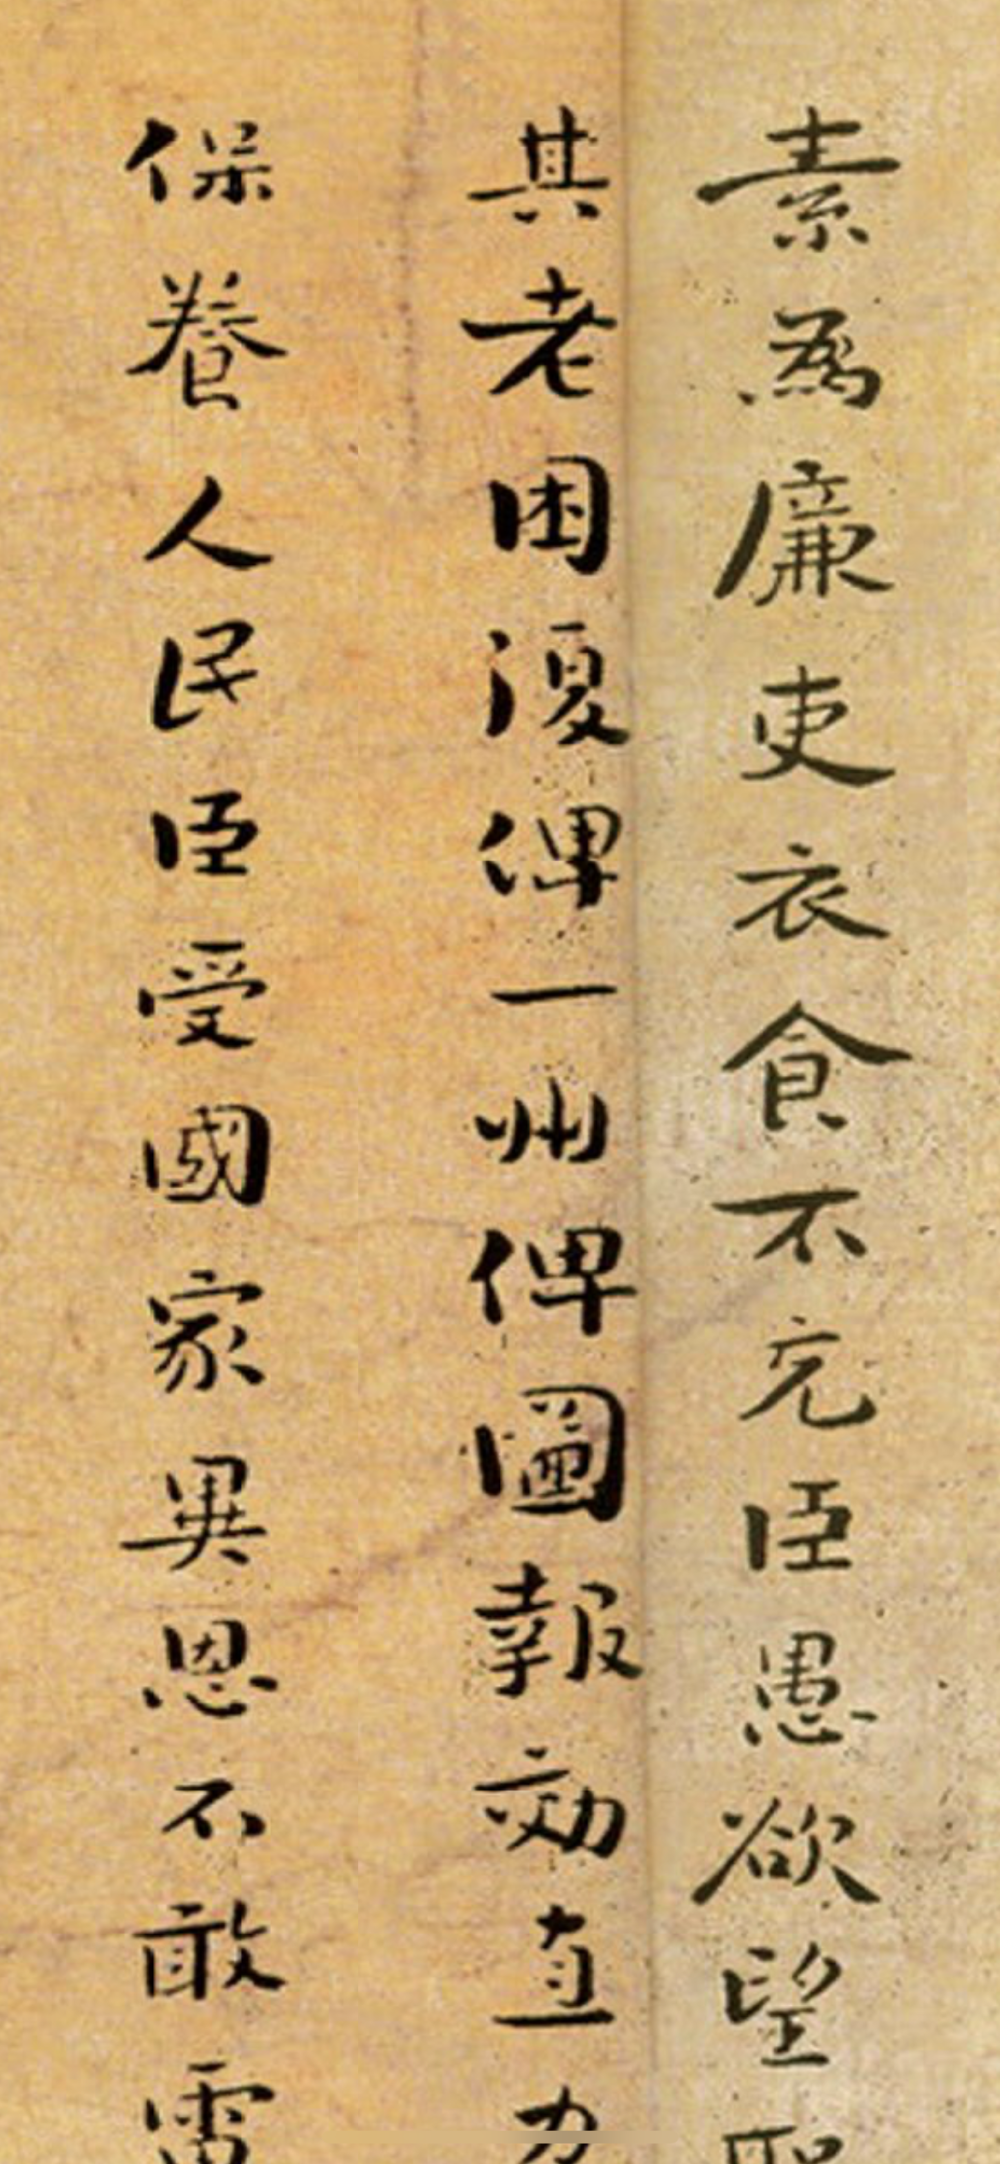 素為廉吏衣食不充臣愚欲望聖
其老困復俾一州俾圖報効直力
保養人民臣受國家異恩不敢雷